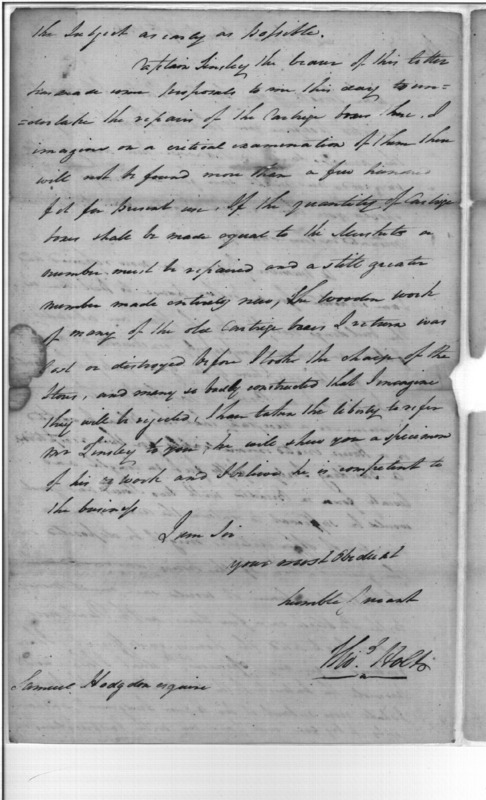 the Subject as early as Possible.
Captain Tinsley the bearer of this letter
has made some proposals to me this day to un=
=dertake the repairs of the Cartrige boxes here, I
imagine on a critical examination of them there
will not be found more than a few hundred
fit for present use. If the quantity of Cartrige
boxes shall be made equal to the Muskets a
number must be repaired and a still greater
number made entirely new, the wooden work
of many of the old Cartrige boxes I return was
lost or destroyed before I tooke the charge of the
Stores, and many so badly constructed that I imagine
they will be rejected, I have taken the liberty to refer
Mr Tinsley to you, he will shew you a specimen
of his work and I believe he is competent to
the business
I am Sir
your most Obedient
humble Servant
Thos Holt
Samuel Hodgdon esquire